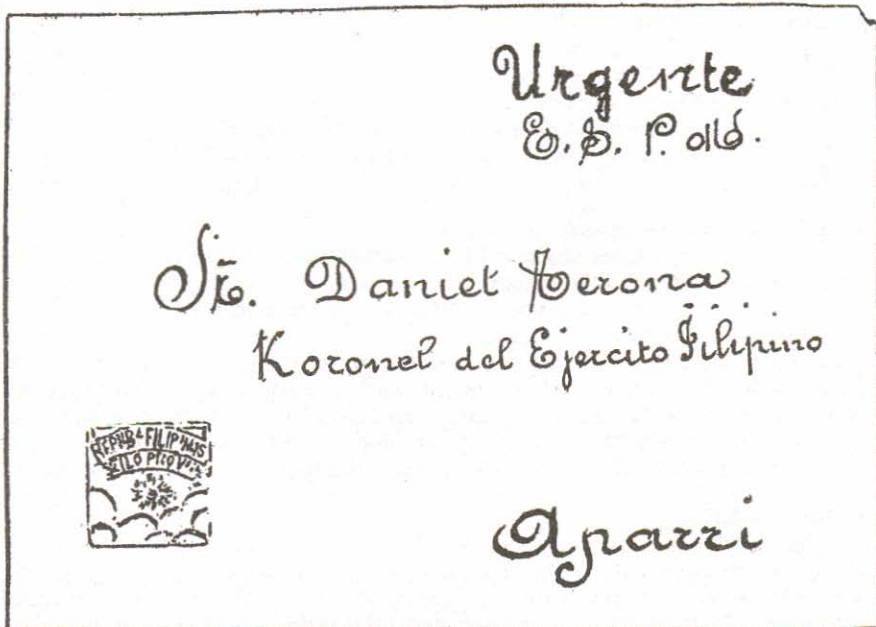 Urgente
E. S. P.
Sr. Daniel Terona
Koronel del Ejercito Filipino
REPUB A FILIPINAS
Aparri